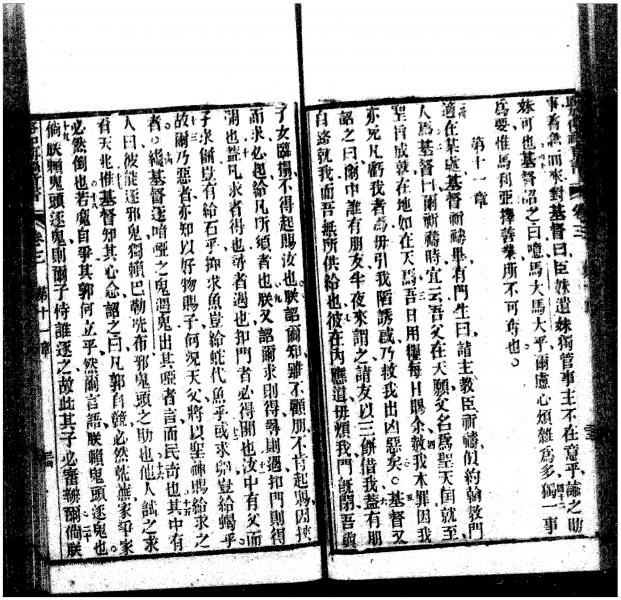 事看善而來對基督曰臣妹遺妹獨管事主不在意乎諭之助
妹可也基督詔之曰噫馬大馬大乎爾慮心煩雜爲多獨一事
爲要惟馬利亞擇善業所不可奪也
第十一章
適在某處基督祈禱畢有門生曰請主教臣祈禱似約翰教門
人焉基督曰爾祈禱時宜云吾父在天願父名爲聖天國就至
聖旨成就在地如在天焉吾日用糧每日賜余赦我本罪因我
亦免凡虧我者焉毋引我陷誘惑乃救我出凶惡矣基督又
詔之曰爾中誰有朋友半夜來謂之請友以三餅借我蓋有朋
自路就我而吾無所供給也彼在內應道毋煩我門既閉吾與
子女臨榻不得起賜汝也朕詔爾知雖不顧朋不肯起賜因挾
而求必起給凡所須者也朕又詔爾求則得尋則遇扣門則得
開也蓋凡求者得也尋者遇也扣門者必得開也汝中有父而
子求餅豈有給石乎抑求魚豈給蛇代魚乎或求卵豈給蝎乎
故爾乃惡者亦知以好物賜子何況天父將以聖神賜給求之
者纔基督逐喑啞之鬼遇鬼出其啞者言而民奇也其中有
人曰彼能逐邪鬼獨賴巴勒洗布邪鬼頭之助也他人試之求
看天兆惟基督知其心念詔之曰凡郭自競必然荒蕪家爭家
必然倒也若魔自爭其郭何立乎候爾言語朕賴鬼頭逐鬼也
倘朕賴鬼頭逐鬼則爾子恃誰逐之故此其子必審辦爾倘朕
卷三 第十一章